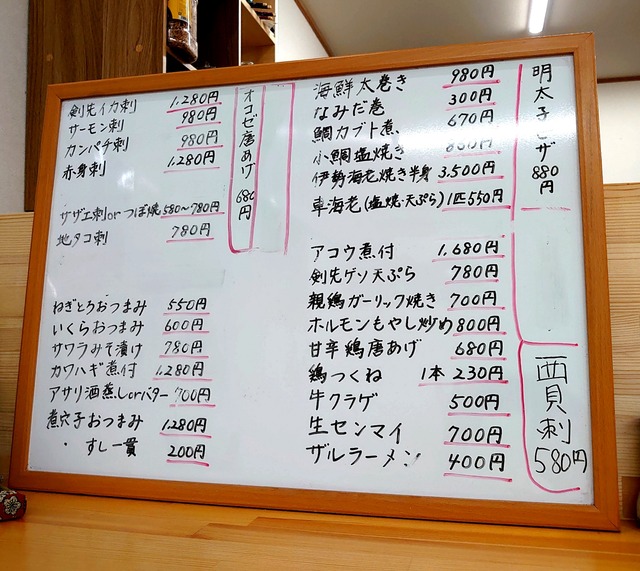 剣先イカ刺 1,280円
サーモン刺 980円
カンパチ刺 980円
赤身刺 1,280円
サザエ刺orつぼ焼 580~780円
地タコ刺 780円
ねぎとろおつまみ 550円
いくらおつまみ 600円
サワラみそ漬け 780円
カワハギ煮付 1,280円
アサリ酒蒸しorバター 700円
煮穴子おつまみ 1,280円
・ すし一貫 200円
オコゼ唐あげ 680円
海鮮太巻き 980円
なみだ巻 300円
鯛カブト煮 670円
小鯛塩焼き
伊勢海老焼き半身 3,500円
車海老(塩焼・天ぷら) 1匹550円
アコウ煮付 1,680円
剣先ゲソ天ぷら 780円
親鶏ガーリック焼き 700円
ホルモンもやし炒め 800円
甘辛鶏唐あげ 680円
鶏つくね 1本 230円
牛クラゲ 500円
生センマイ 700円
ザルラーメン 400円
明太子ピザ 880円
西貝刺 580円